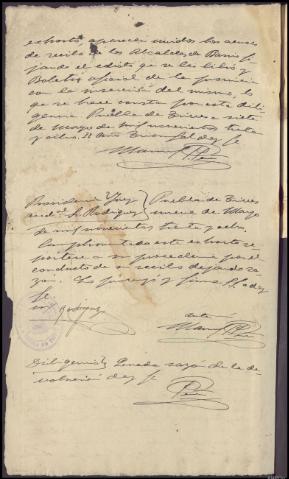 exhorto, aparecen unidos los acuses
de recibo de los Alcaldes de Barrio, 
el edicto que se libró y
Boletin oficial de la provincia
con la inserción del mismo, lo
que se hace constar por esta dili
gencia Puebla de Trives a siete
de mayo de mil novecientos treinta
y ocho. II Año Triunfal doy fe
Providencia Juez
Sr. Rodríguez
Puebla de Trives
nueve de Mayo
de mil novecientos treinta y ocho.
Cumplimentado este exhorto re
pórtese a su procedencia por el
conducto de su recibo dejando ra
zón. Lo proveyó y firma S.S. doy
fe.
Rodríguez
ante mi
Diligencia) Queda razón de la de
volución doy fe